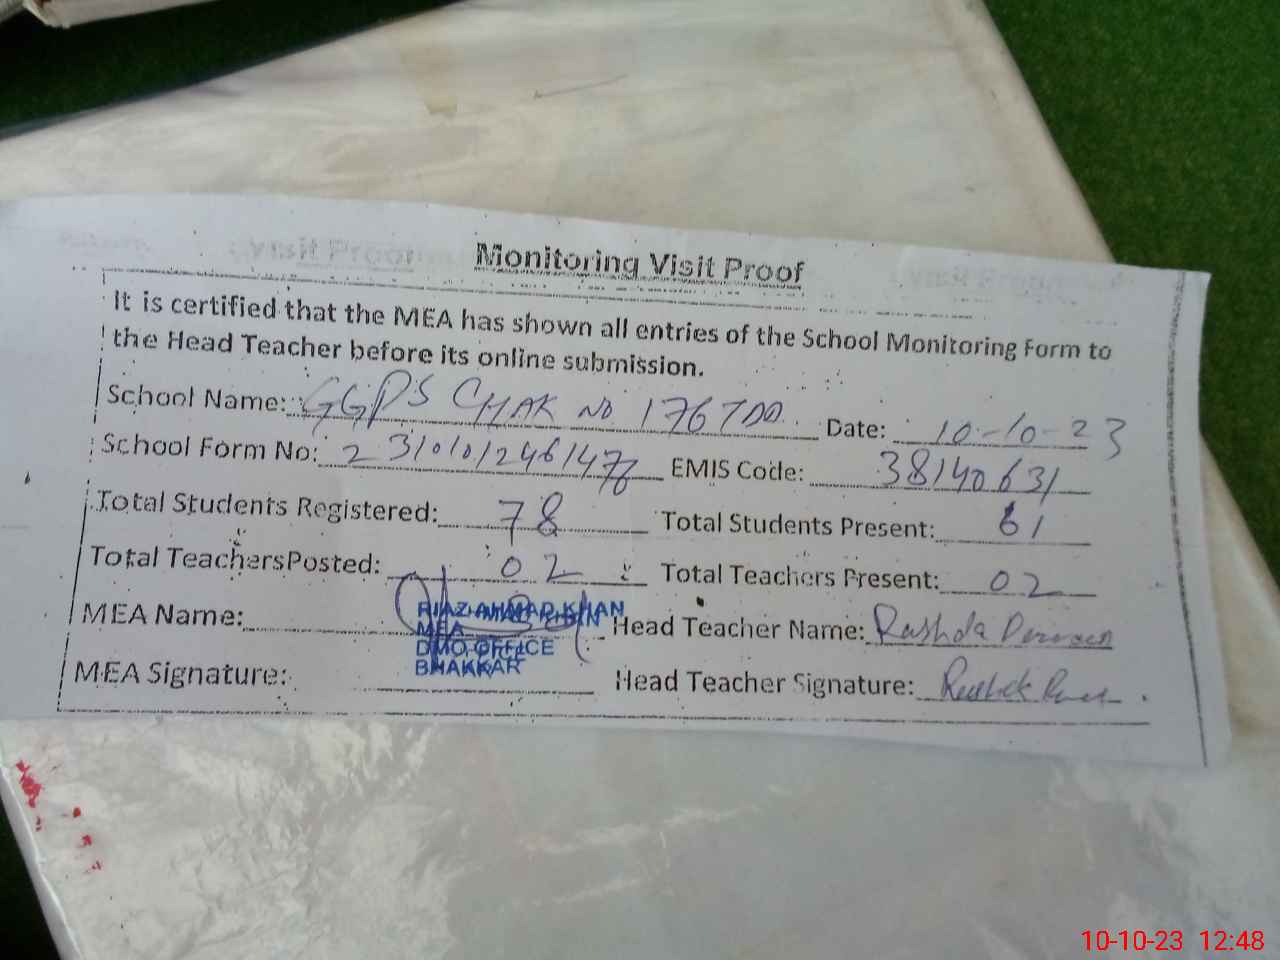 Monitoring Visit Proof
It is certified that the MEA has shown all entries of the School Monitoring Form to
the Head Teacher before its online submission.
School Name: GGPS CHAK NO 176 TDA Date: 10-10-23
School Form No: EMIS Code: 38140631
Total Students Registered: 78 Total Students Present: 61
Total TeachersPosted: 02 Total Teachers Present: 02
MEA Name: RIAZ AHMAD KHAN Head Teacher Name: Rashda Parveen
MEA
DMO OFFICE
BHAKKAR
MEA Signature: Head Teacher Signature:
10-10-23 12:48